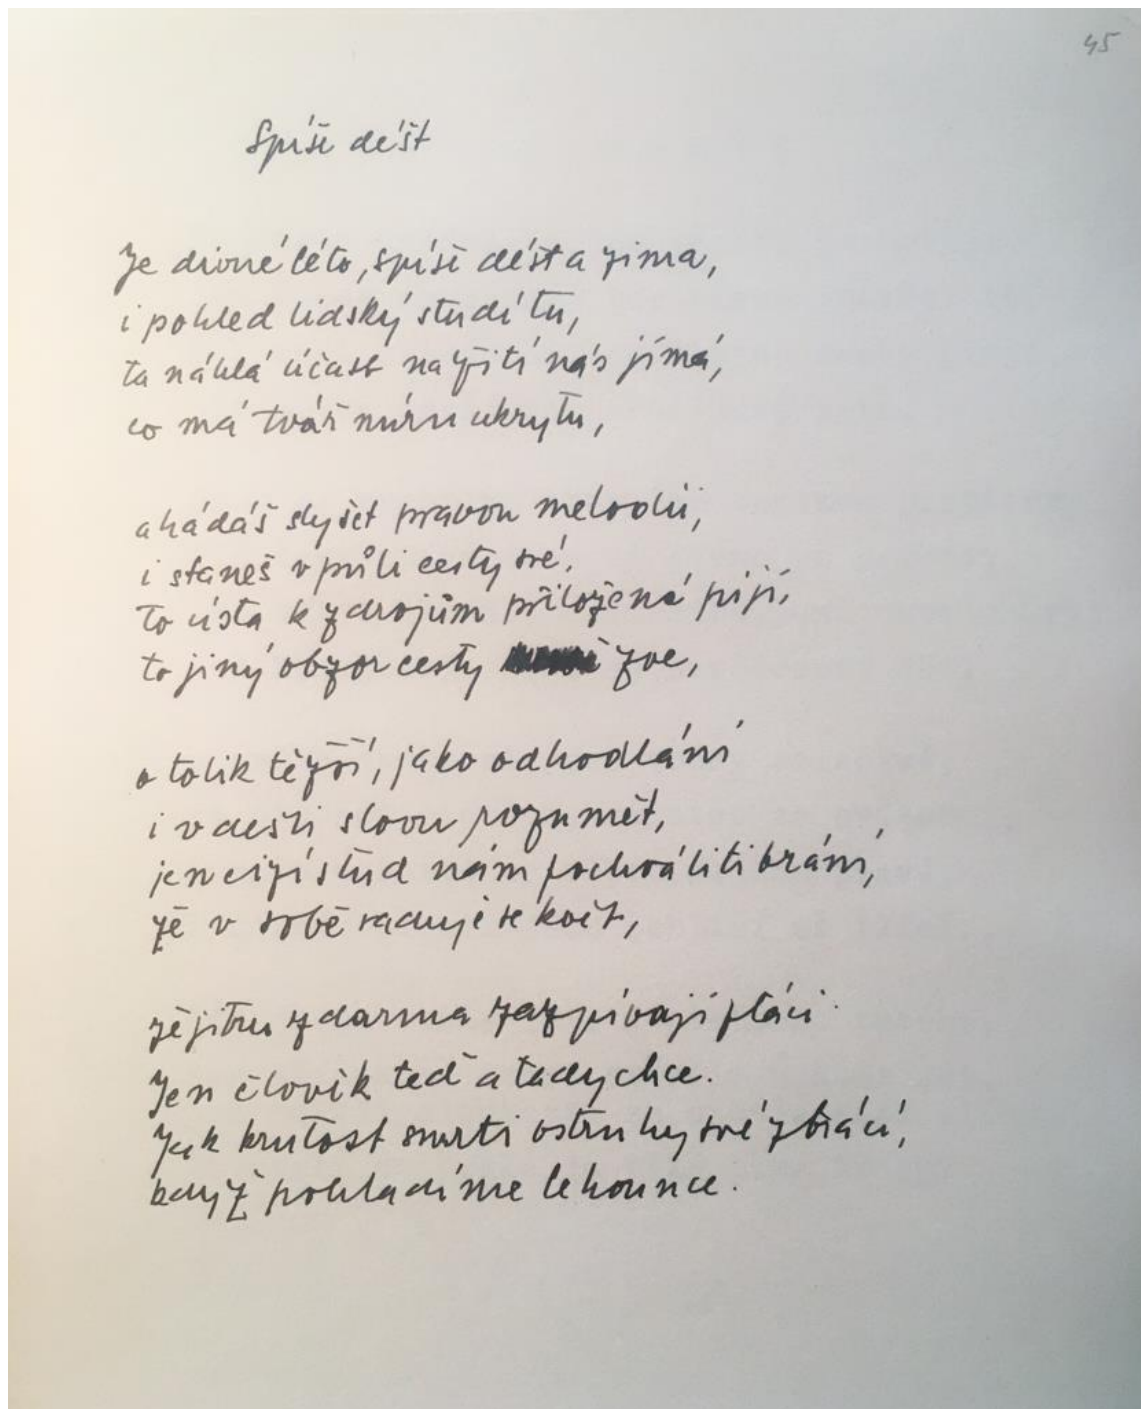 45
Spíše déšť
Je divné léto, spíše déšť a zima,
i pohled lidský studí tu,
ta náhlá účast na žití nás jímá,
co má tvář míru ukrytu,
a hádáš slyšet pravou melodii,
i staneš v půli cesty své.
To ústa k zdrojům přiložená pijí,
to jiný obzor cesty zve,
o tolik těžší, jako odhodlání
i v dešti slovu rozumět,
jen cizí stud nám pochváliti brání,
že v sobě raduje se květ,
že jitru zdarma zazpívají ptáci.
Jen člověk teď a tady chce.
Jak krutost smrti ostruhy své ztrácí,
když pohladíme lehounce.